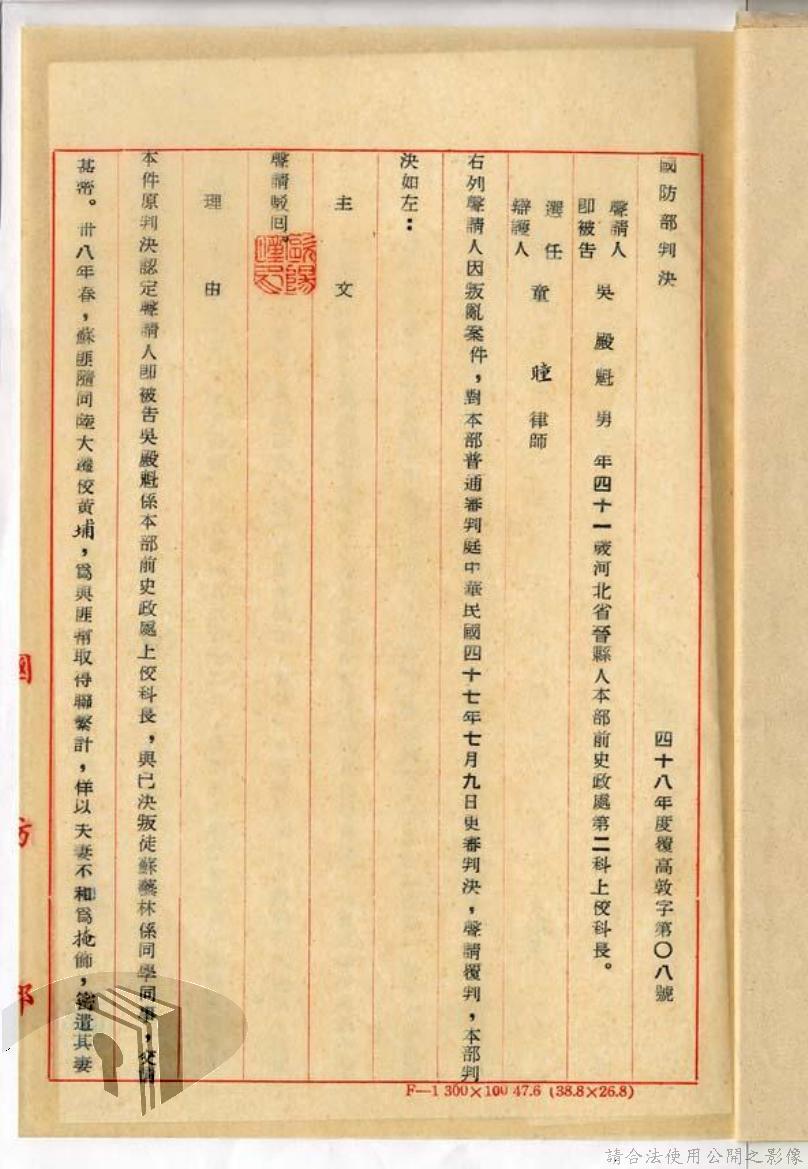 國防部判決
四十八年度覆高敦字第〇八號
聲請人
即被告 吳殿魁 男 年四十一歲河北省晉縣人本部前史政處第二科上校科長。
選任
辯護人 童瞳律師
右列聲請人因叛亂案件,對本部普通審判庭中華民國四十七年七月九日更審判決,聲請覆判,本部判
決如左:
主文
聲請駁回。
理由
本件原判決認定聲請人即被告吳殿魁係本部前史政處上校科長,與已決叛徒蘇藝林係同學同事,交情
甚密。卅八年春,蘇匪隨同陸大遷校黃埔,為與匪幫取得聯繫計,佯以夫妻不和為掩飾,密遣其妻
國防部
F—1 300×100 47.6 (38.8×26.8)
請合法使用公開之影像